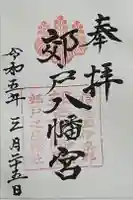 奉拝
郊戸八幡宮
令和五年三月二十五日